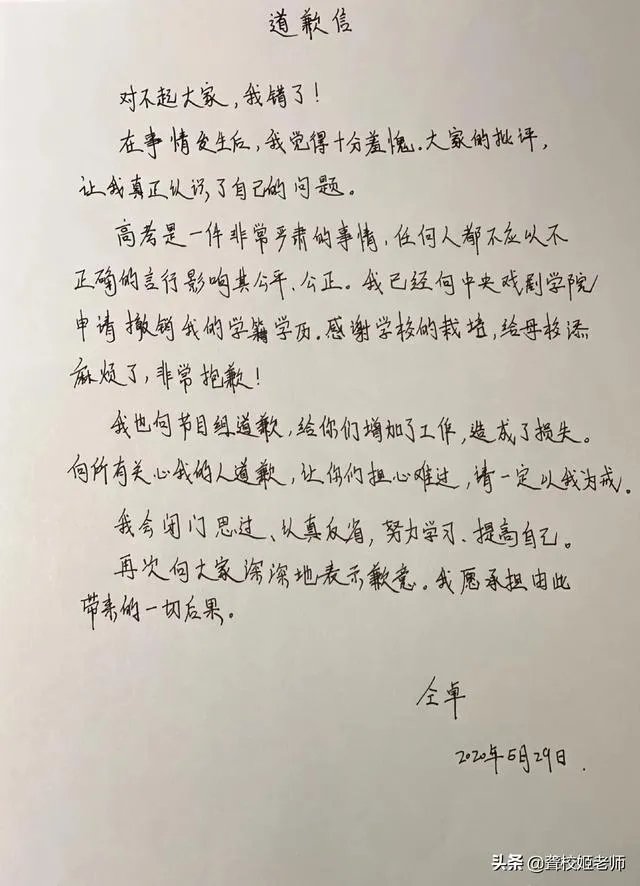 道歉信
对不起大家，我错了！
在事情发生后，我觉得十分羞愧。大家的批评，
让我真正认识了自己的问题。
高考是一件非常严肃的事情，任何人都不应以不
正确的言行影响其公平、公正。我已经向中央戏剧学院
申请撤销我的学籍学历。感谢学校的栽培，给母校添
麻烦了，非常抱歉！
我也向节目组道歉，给你们增加了工作，造成了损失。
向所有关心我的人道歉，让你们担心难过，请一定以我为戒。
我会闭门思过、认真反省，努力学习、提高自己。
再次向大家深深地表示歉意。我愿承担由此
带来的一切后果。
仝卓
2020年5月29日.
头条@聋校姬老师